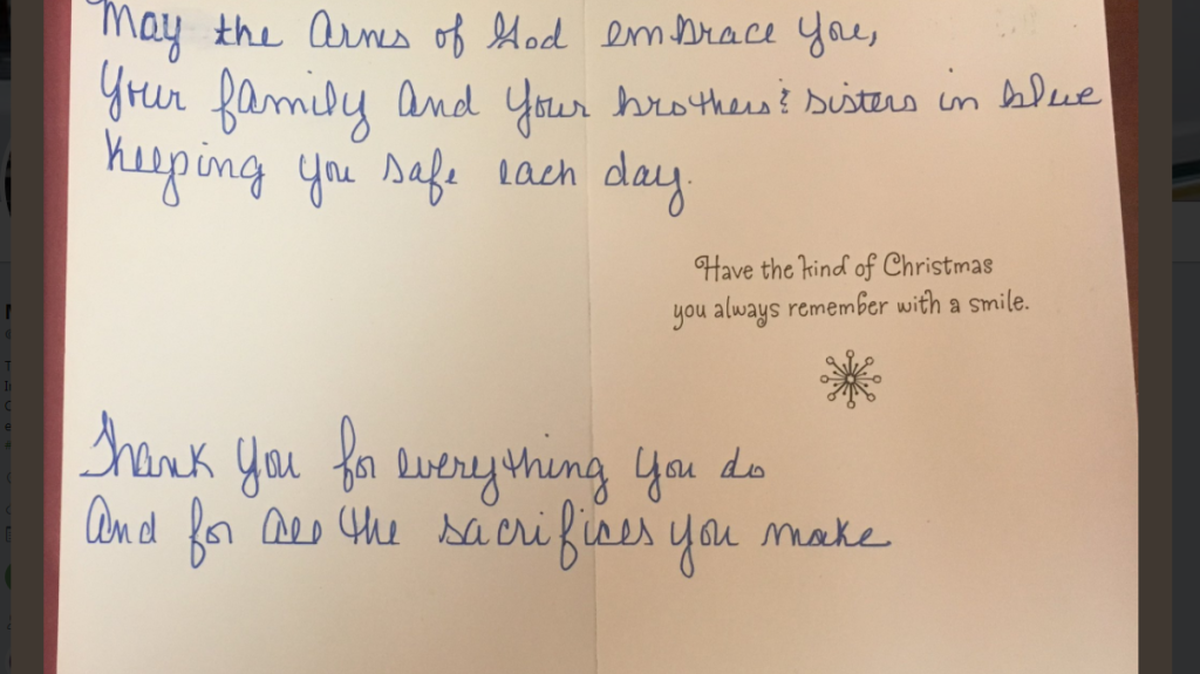 May the arms of God embrace you,
your family and your brothers & sisters in blue
keeping you safe each day.
Have the kind of Christmas
you always remember with a smile.
Thank you for everything you do
and for all the sacrifices you make